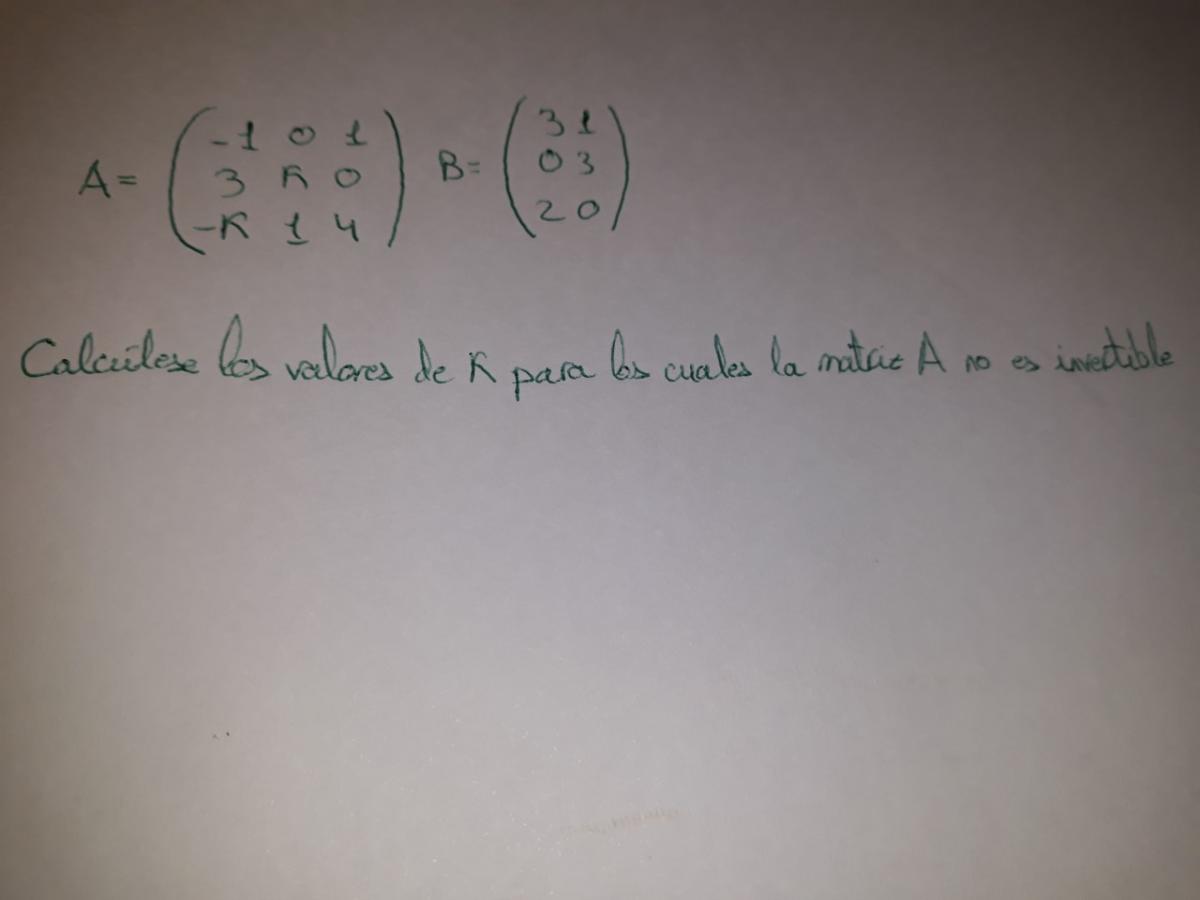 A = ( -1 0 1 B = ( 3 1
3 K 0 ) 0 3
-K 1 4 2 0 )
Calcúlese los valores de K para los cuales la matriz A no es invertible